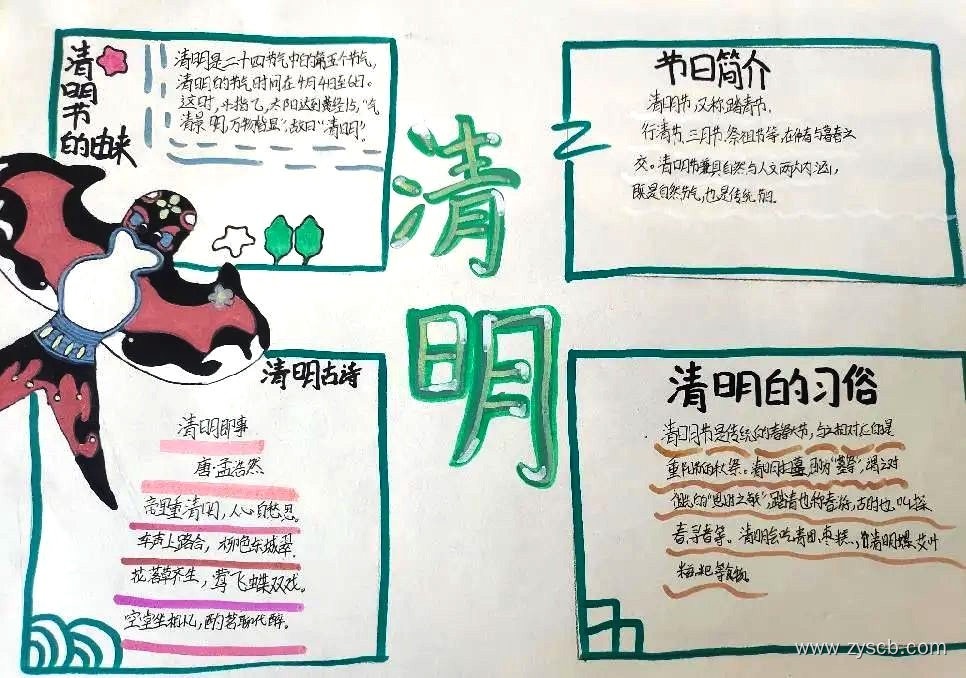 清明节的由来
清明是二十四节气中的第五个节气,
清明的节气时间在4月4日至6日。
这时,斗指乙,太阳达到黄经15,"气
清景明,万物皆显",故曰"清明"。
清明
节日简介
清明节,又称踏青节,
行清节、三月节、祭祖节等,在仲春与暮春之
交。清明节兼具自然与人文两大内涵,
既是自然节气,也是传统节日。
清明古诗
清明即事
唐·孟浩然
帝里重清明,人心自愁思。
车声上路合,柳色东城翠。
花落草齐生,莺飞蝶双戏。
空堂坐相忆,酌茗聊代醉。
清明的习俗
清明节是传统的春祭大节,与之相对应的是
重阳节的秋祭。清明
的"思时之敬",踏清也称春游,古时也叫探
春、寻春等。清明
等食物。
www.zyscb.com